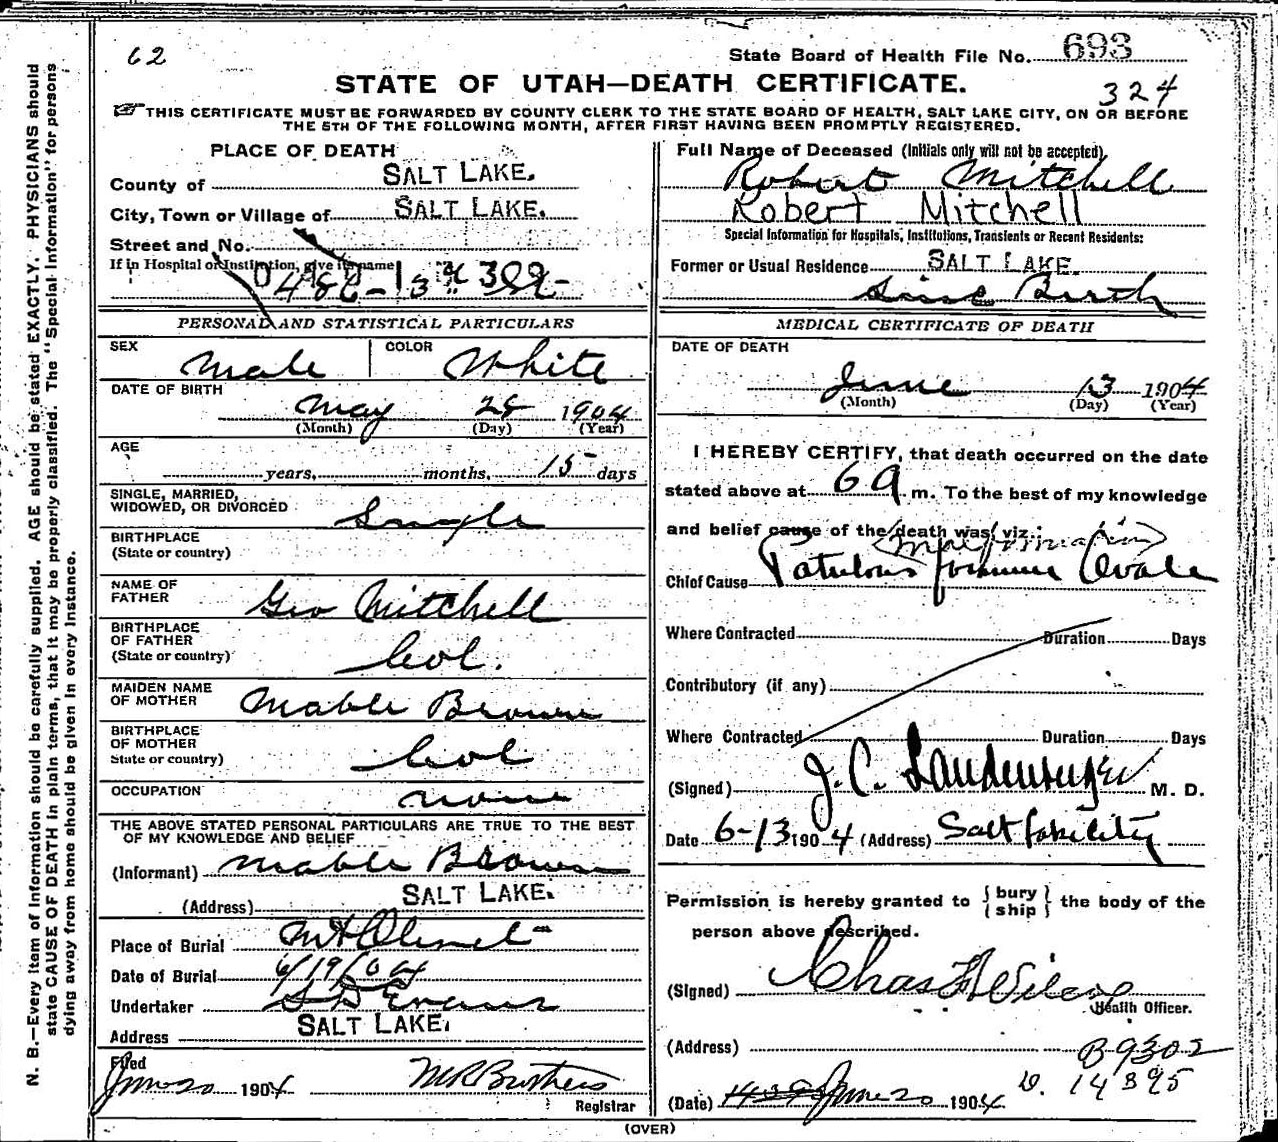 62
State Board of Health File No. 693
STATE OF UTAH—DEATH CERTIFICATE.
324
THIS CERTIFICATE MUST BE FORWARDED BY COUNTY CLERK TO THE STATE BOARD OF HEALTH, SALT LAKE CITY, ON OR BEFORE
THE 5TH OF THE FOLLOWING MONTH, AFTER FIRST HAVING BEEN PROMPTLY REGISTERED.
N. B.—Every item of information should be carefully supplied. AGE should be stated EXACTLY. PHYSICIANS should
state CAUSE OF DEATH in plain terms, that it may be properly classified. The "Special Information" for persons
dying away from home should be given in every instance.
PLACE OF DEATH
County of SALT LAKE.
City, Town or Village of SALT LAKE.
Street and No.
If in Hospital or Institution, give its name
PERSONAL AND STATISTICAL PARTICULARS
SEX Male COLOR White
DATE OF BIRTH
May 28 1904
(Month) (Day) (Year)
AGE
years, months, 15 days
SINGLE, MARRIED,
WIDOWED, OR DIVORCED Single
BIRTHPLACE
(State or country)
NAME OF
FATHER Geo Mitchell
BIRTHPLACE
OF FATHER
(State or country) Col.
MAIDEN NAME
OF MOTHER Mable Brown
BIRTHPLACE
OF MOTHER
State or country) Col
OCCUPATION none
THE ABOVE STATED PERSONAL PARTICULARS ARE TRUE TO THE BEST
OF MY KNOWLEDGE AND BELIEF
(Informant) Mable Brown
(Address) SALT LAKE.
Place of Burial Mt Olivet
Date of Burial 6/19/04
Undertaker S D Evans
Address SALT LAKE.
Filed
June 20 1904
Registrar
Full Name of Deceased (Initials only will not be accepted)
Robert Mitchell
Robert Mitchell
Special Information for Hospitals, Institutions, Transients or Recent Residents:
Former or Usual Residence SALT LAKE.
Since Birth
MEDICAL CERTIFICATE OF DEATH
DATE OF DEATH
June 13 1904
(Month) (Day) (Year)
I HEREBY CERTIFY, that death occurred on the date
stated above at 6 a m. To the best of my knowledge
and belief cause of the death was viz.:
(malformation)
Chief Cause Patulous foramen Ovale
Where Contracted Duration Days
Contributory (if any)
Where Contracted Duration Days
(Signed) J. C. Landenberger M. D.
Date 6-13 1904 (Address) Salt Lake City
Permission is hereby granted to { bury
ship } the body of the
person above described.
(Signed) Chas Wilcox
Health Officer.
(Address) B-9302
D. 14895
(Date) June 20 1904
(OVER)